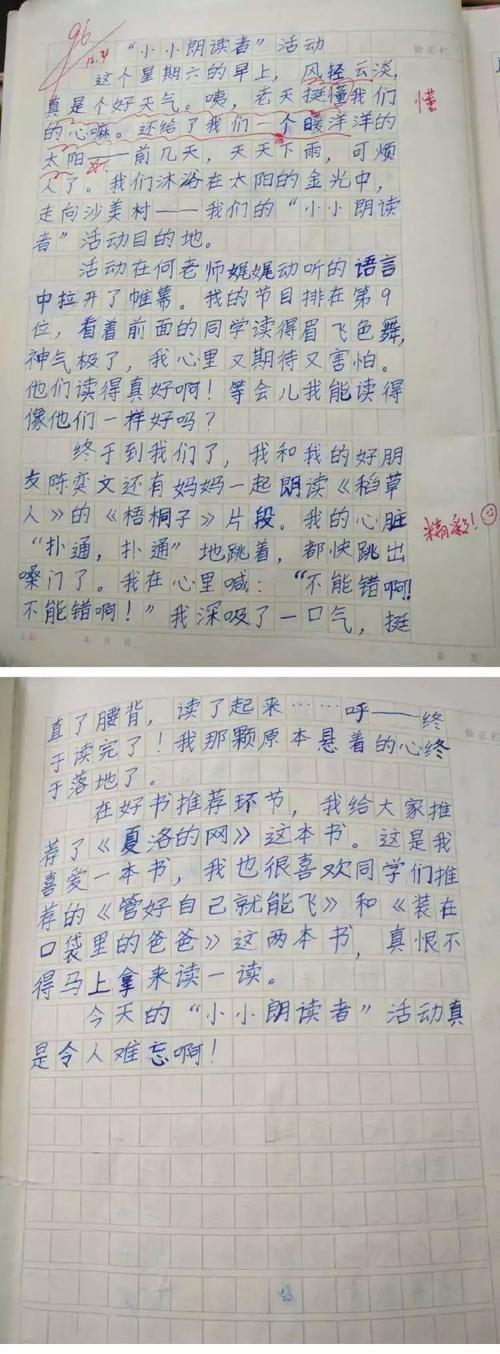 96
12.9
“小小朗读者”活动
修正栏
这个星期六的早上，风轻云淡，
真是个好天气。咦，老天挺懂我们
懂
的心嘛。还给了我们一个暖洋洋的
太阳——前几天，天天下雨，可烦
人了。我们沐浴在太阳的金光中，
走向沙美村——我们的“小小朗读
者”活动目的地。
活动在何老师娓娓动听的语言
中拉开了帷幕。我的节目排在第9
位，看着前面的同学读得眉飞色舞，
神气极了，我心里又期待又害怕。
他们读得真好啊！等会儿我能读得
像他们一样好吗？
终于到我们了，我和我的好朋
友陈奕文还有妈妈一起朗读《稻草
人》的《梧桐子》片段。我的心脏
精彩！
“扑通，扑通”地跳着，都快跳出
嗓门了。我在心里喊：“不能错啊！
不能错啊！”我深吸了一口气，挺
年 月 日
直了腰背，读了起来……呼——终
修正栏
于读完了！我那颗原本悬着的心终
于落地了。
在好书推荐环节，我给大家推
荐了《夏洛的网》这本书。这是我
喜爱一本书，我也很喜欢同学们推
荐的《管好自己就能飞》和《装在
口袋里的爸爸》这两本书，真恨不
得马上拿来读一读。
今天的“小小朗读者”活动真
是令人难忘啊！